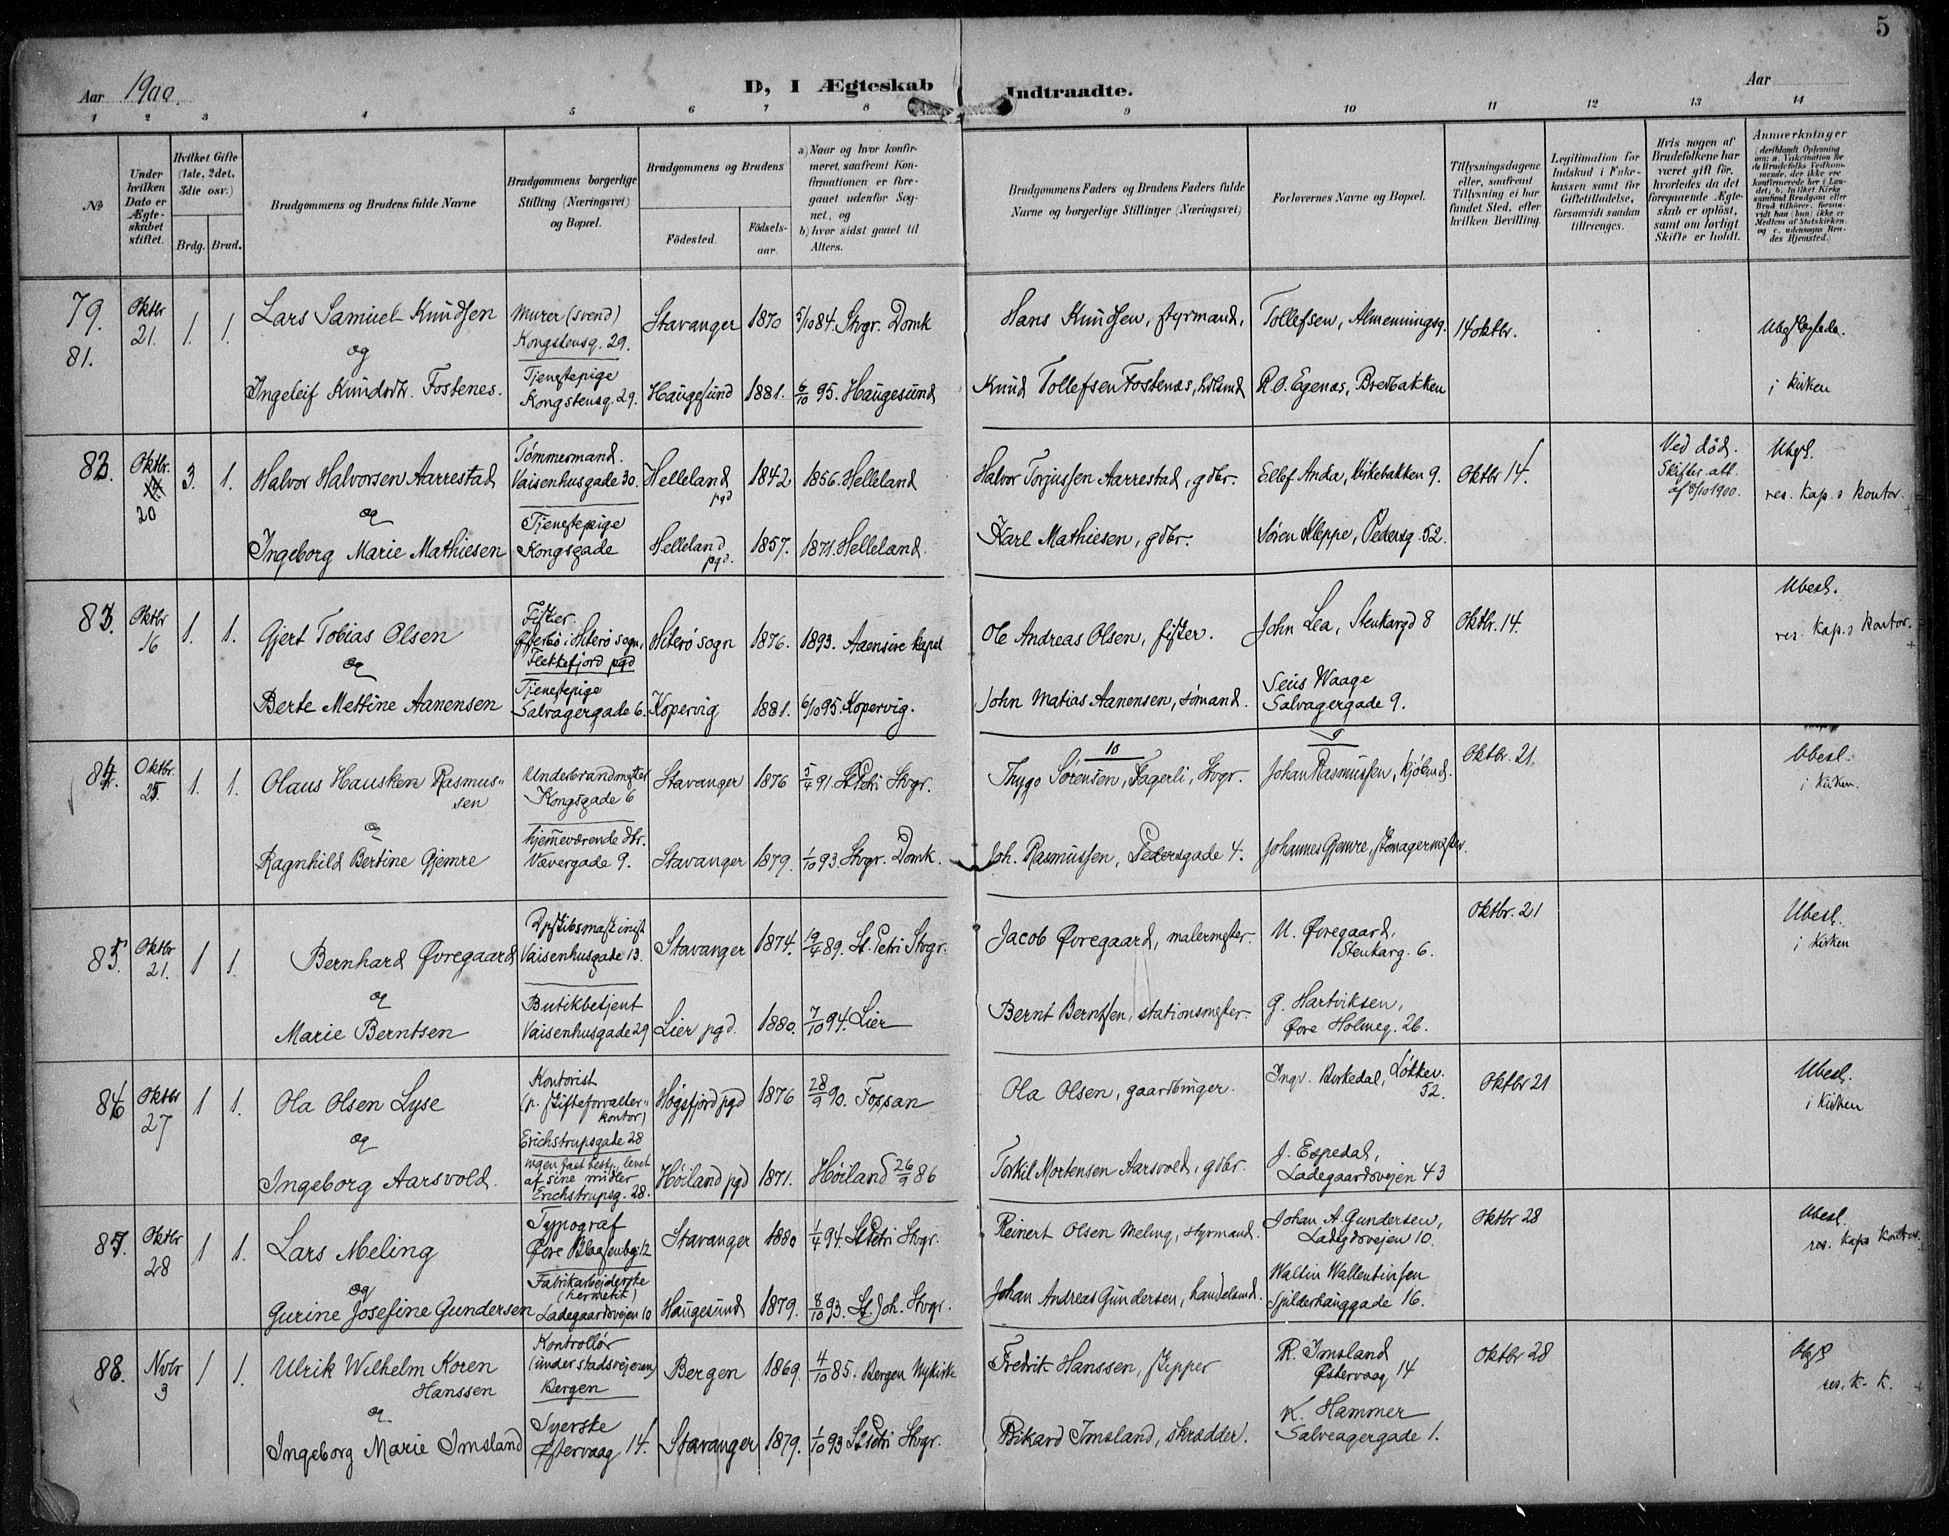 5
Aar 1900.
D, I Ægteskab Indtraadte.
Aar
1 2 3 4 5 6 7 8 9 10 11 12 13 14
No
Under hvilken Dato er Ægteskabet stiftet.
Hvilket Gifte (1ste, 2det, 3die osv.)
Brdg. Brud.
Brudgommens og Brudens fulde Navne
Brudgommens borgerlige Stilling (Næringsvei) og Bopæl.
Brudgommens og Brudens
Fødested. Fødselsaar.
a) Naar og hvor konfirmeret, saafremt Konfirmationen er foregaaet udenfor Sognet, og
b) hvor sidst gaaet til Alters.
Brudgommens Faders og Brudens Faders fulde Navne og borgerlige Stillinger (Næringsvei)
Forlovernes Navne og Bopæl.
Tillysningsdagene eller, saafremt Tillysning ei har fundet Sted, efter hvilken Bevilling
Legitimation for Indskud i Enkekassen samt for Giftetilladelse, forsaavidt saadan tiltrænges.
Hvis nogen af Brudefolkene har været gift før, hvorledes da det foregaaende Ægteskab er opløst, samt om lovligt Skifte er holdt.
Anmerkninger
79. Oktbr 21. 1. 1. Lars Samuel Knudsen Murer (svend) Kongstensg. 29. Stavanger 1870 5/10 84. Stvgr. Domk Hans Knudsen, styrmand, Tollefsen, Almenningsg. 14 oktbr.
81. og
Ingeleif Knudsdtr. Fostenes. Tjenestepige Kongstensg. 29. Haugesund 1881. 6/10 95. Haugesund Knud Tollefsen Fostenes, R. O. Egenæs, Bredbakken i kirken
82. Oktbr. 20 3. 1. Halvor Halvorsen Aarrestad Tømmermand. Vaisenhusgade 30. Helleland pgd 1842 1856. Helleland Halvor Torjussen Aarrestad, gdbr. Ellef Anda, Kirkebakken 9. Oktbr 14. Ved død. Skifteatt. af 8/10 1900. Ubesl. res. Kap.s kontor.
og
Ingeborg Marie Mathiesen Tjenestepige Kongsgade Helleland pgd. 1857. 1871. Helleland. Karl Mathiesen, gdbr. Søren Kleppe, Pedersg. 52.
83. Oktbr 16 1. 1. Gjert Tobias Olsen Fisker. i Hiterø sogn, Flekkefjord pgd Hiterø sogn 1876. 1893. Aaensire kapel Ole Andreas Olsen, fisker. John Lea, Stenkargd 8 Oktbr. 14. Ubesl. res. kap.s kontor.
og
Berte Mettine Aanensen Tjenestepige Salvagergade 6. Kopervig 1881. 6/10 95. Kopervig. John Matias Aanensen, sømand. Seius Waage Salvagergade 9.
84. Oktbr. 25. 1. 1. Olaus Hausken Rasmussen Underbrandmester Kongsgade 6 Stavanger 1876 5/4 91. St. Petri Stvgr. 10 Thygo Sörensen, Fagerli, Stvgr. Johan Rasmussen, kjøbmd. Oktbr 21. Ubesl. i kirken.
og
Ragnhild Bertine Gjemre hjemmeværende dtr. Vævergade 9. Stavanger 1879. 1/10 93. Stvgr. Domk. Joh. Rasmussen, Pedersgade 4. Johannes Gjemre, skomagermester.
85. Oktbr 21. 1 1. Bernhard Øvregaard Dpskibsmaskinist Vaisenhusgade 13. Stavanger 1874. 19/4 89. St. Petri Stvgr. Jacob Øvregaard, malermester. U. Øvregaard, Stenkarg. 6. Oktbr. 21 Ubesl. i kirken
og
Marie Berntsen Butikbetjent Vaisenhusgade 29 Lier pgd. 1880. 7/10 94. Lier Bernt Berntsen, stationsmester. G. Hartviksen, Øvre Holmeg. 26.
86 Oktbr 27 1 1. Ola Olsen Lyse Kontorist (p. skifteforvalterkontor) Erichstrupsgade 28 Høgsfjord pgd 1876 28/9 90. Fossan Ola Olsen, gaardbruger. Ingv. Birkedal, Løkkev. 52. Oktbr 21 Ubesl. i kirken
og
Ingeborg Aarsvold. ingen fast best., levet af sine midler Erichstrupsg. 28. Høiland pgd 1871. Høiland 26/9 86 Torkil Mortensen Aarsvold, gdbr. J. Espedal, Ladegaardsvejen 43
87. Oktbr 28 1 1. Lars Meling Typograf Øvre Blaasenbg. 12 Stavanger 1880 1/4 94. St. Petri Stvgr. Reinert Olsen Meling, styrmand. Johan A. Gundersen, Ladegdsvejen 10. Oktbr 28 Ubesl. res. kaps kontor.
og
Gurine Josefine Gundersen Fabrikarbejderske (hermetik) Ladegaardsvejen 10 Haugesund 1879. 8/10 93. St. Joh. Stvgr. Johan Andreas Gundersen, handelsmd. Waltin Wallentinsen Spilderhauggade 16.
88. Novbr 3 1 1. Ulrik Wilhelm Koren Hanssen Kontrollør (under stadsvejeren) Bergen Bergen 1869. 4/10 85. Bergen Nykirke Fredrik Hanssen, skipper R. Imsland Østervaag 14 Oktbr 28 res. k. k.
og
Ingeborg Marie Imsland Syerske Østervaag 14. Stavanger 1879. 1/10 93 St. Petri Stvgr. Rikard Imsland, skrædder. K. Hammer Salveagergade 1.